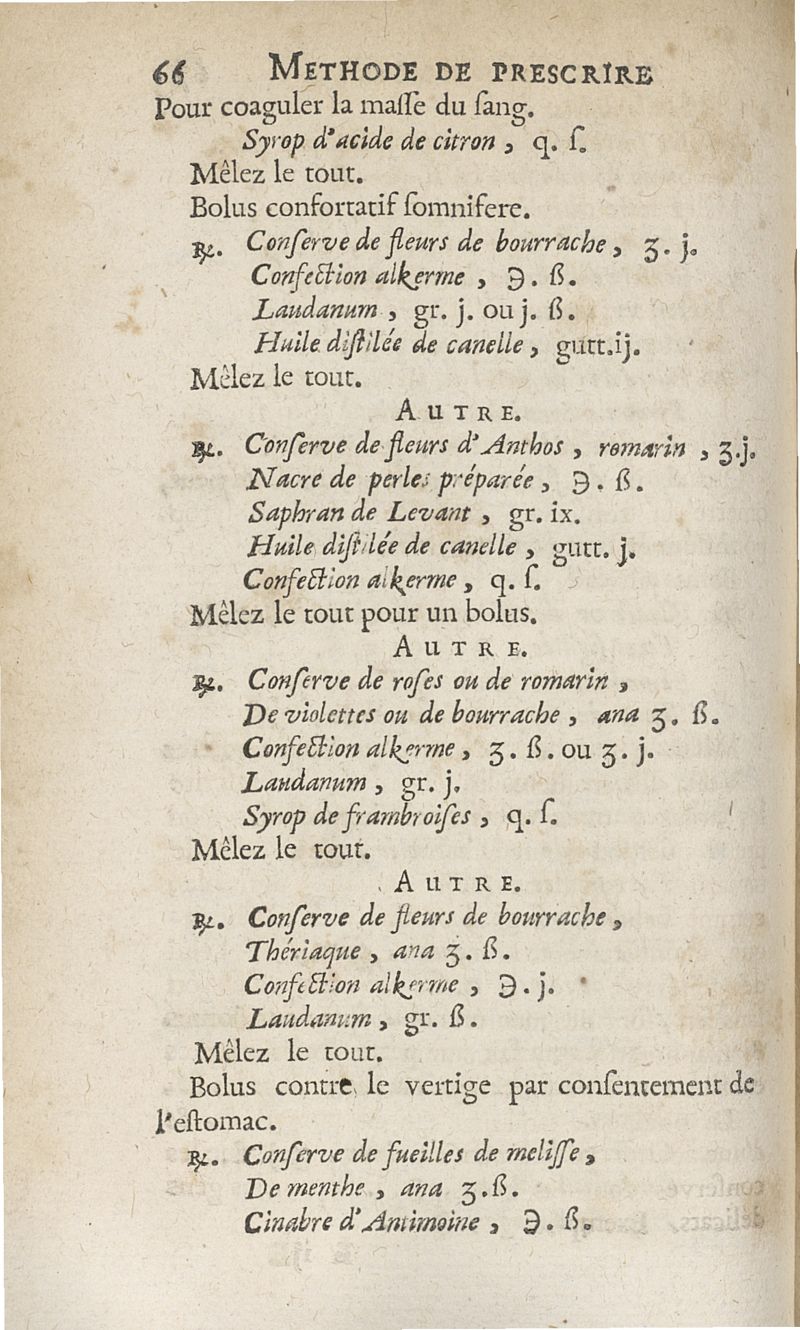 66 METHODE DE PRESCRIRE
Pour coaguler la maſſe du ſang.
Syrop d'acide de citron, q. ſ.
Mêlez le tout.
Bolus confortatif ſomnifere.
℞. Conſerve de fleurs de bourrache, ʒ. j.
Confection alkerme, ℈. ß.
Laudanum, gr. j. ou j. ß.
Huile diſtilée de canelle, gutt. ij.
Mêlez le tout.
AUTRE.
℞. Conſerve de fleurs d'Anthos, romarin, ʒ. j.
Nacre de perles préparée, ℈. ß.
Saphran de Levant, gr. ix.
Huile diſtilée de canelle, gutt. j.
Confection alkerme, q. ſ.
Mêlez le tout pour un bolus.
AUTRE.
℞. Conſerve de roſes ou de romarin,
De violettes ou de bourrache, ana ʒ. ß.
Confection alkerme, ʒ. ß. ou ʒ. j.
Laudanum, gr. j.
Syrop de framboiſes, q. ſ.
Mêlez le tout.
AUTRE.
℞. Conſerve de fleurs de bourrache,
Thériaque, ana ʒ. ß.
Confection alkerme, ℈. j.
Laudanum, gr. ß.
Mêlez le tout.
Bolus contre le vertige par conſentement de
l'eſtomac.
℞. Conſerve de fueilles de meliſſe,
De menthe, ana ʒ. ß.
Cinabre d'Antimoine, ℈. ß.